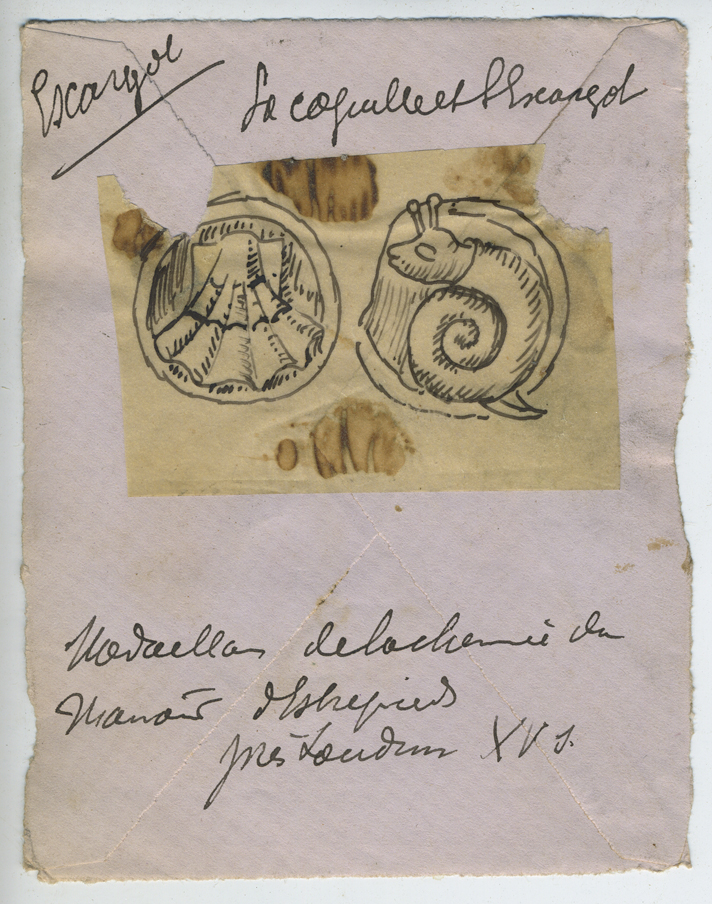 Escargot
La coquille et l'Escargot
Medaillon de la cheminée du
Manoir d'Estrepieds
près Loudun XV s.